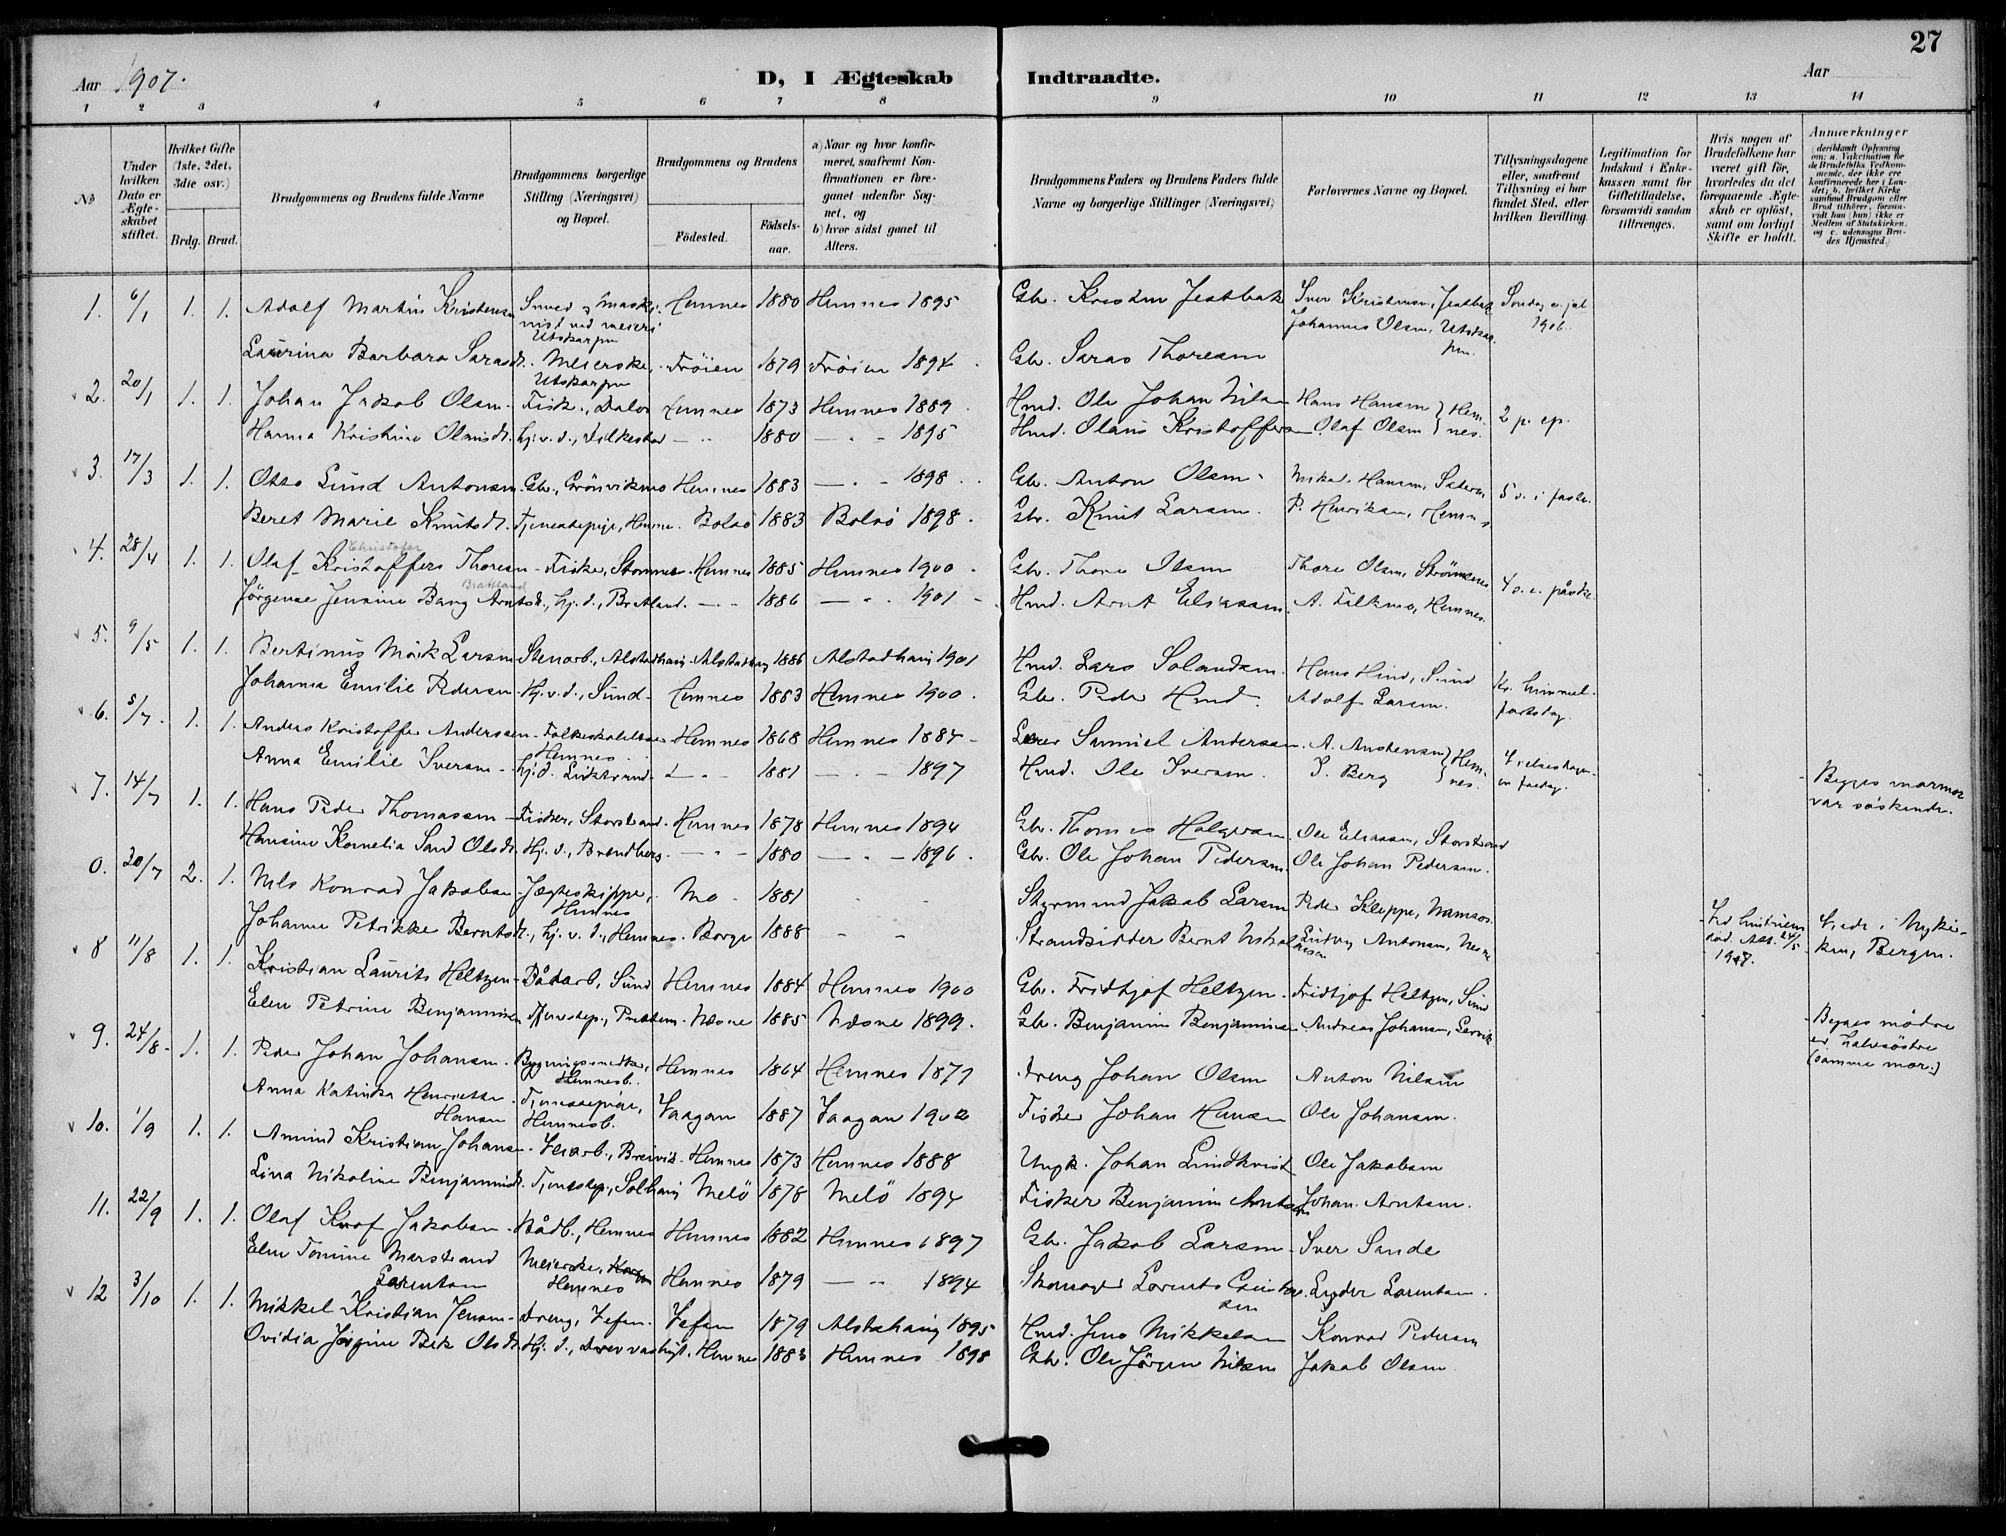 27
Aar 1907.
D, I Ægteskab Indtraadte.
Aar
1 2 3 4 5 6 7 8 9 10 11 12 13 14
No
Under hvilken Dato er Ægteskabet stiftet.
Hvilket Gifte (1ste, 2det, 3die osv.)
Brdg. Brud.
Brudgommens og Brudens fulde Navne
Brudgommens borgerlige Stilling (Næringsvei) og Bopæl.
Brudgommens og Brudens
Fødested.
Fødselsaar.
a) Naar og hvor konfirmeret, saafremt Konfirmationen er foregaaet udenfor Sognet, og
b) hvor sidst gaaet til Alters.
Brudgommens Faders og Brudens Faders fulde Navne og borgerlige Stillinger (Næringsvei)
Forlovernes Navne og Bopæl.
Tillysningsdagene eller, saafremt Tillysning ei har fundet Sted, efter hvilken Bevilling.
Legitimation for Indskud i Enkekassen samt for Giftetilladelse, forsaavidt saadan tiltrænges.
Hvis nogen af Brudefolkene har været gift før, hvorledes da det foregaaende Ægteskab er opløst, samt om lovligt Skifte er holdt.
Anmærkninger
1. 6/1 1. 1. Adolf Martin Kristensen Smed og maskinist ved meieri Utskarpen Hemnes 1880 Hemnes 1895 Gbr. Kristen Jestbak Iver Kristensen, Jestbak Johannes Olsen, Utskarpen. Søndag e. jul 1906.
Laurina Barbara Sarasdt. Meierske, Utskarpen Frøien 1879 Frøien 1894 Gbr. Saras Thoresen
2. 20/1 1. 1. Johan Jakob Olsen Fisk., Dalos Hemnes 1873 Hemnes 1889 Hmd. Ole Johan Nilsen Hans Hansen Hemnes. 2 p. ep.
Hanna Kristine Olausdt. Hj. v. d., 1880 1895 Hmd. Olaus Kristoffersen Olaf Olsen
3. 17/3 1. 1. Otto Lund Antonsen Gbr., Grönviknes Hemnes 1883 1898 Gbr. Anton Olsen Mikal Hansen, 5 s. i faste.
Beret Marie Knutsdt. Tjenestepige, Hemnes Bolsö 1883 Bolsö 1898 Gbr. Knut Larsen P. Henriksen, Hemnes
4. 28/4 1. 1. Olaf Kristoffers Thoresen Christofer Fisker, Hemnes 1885 Hemnes 1900 Gbr. Thore Olsen Thore Olsen, 4 s. e. påske.
Jörgense Jensine Bang Arntsdt. Bratland Hj. d., Bratland 1886 1901 Hmd. Arnt Eliassen A. Hemnes
5. 9/5 1. 1. Bertinus Mörk Larsen Stenarb., Alstadhaug Alstadhaug 1886 Alstadhaug 1901 Hmd. Lars Hans Hind, Sund Kr. himmelfartsdag.
Johanna Emilie Pedersen Hj. v. d., Sund Hemnes 1883 Hemnes 1900 Gbr. Peder Hind Adolf Larsen.
6. 5/7 1. 1. Anders Kristoffer Anderssen Folkeskolelærer Hemnes Hemnes 1868 Hemnes 1884 Lærer Samuel Anderssen A. Austensen Hemnes.
Anna Emilie Iversen Hj. d. 1881 1897 Hmd. Ole Iversen. S. Berg
7. 14/7 1. 1. Hans Peder Thomassen Fisker, Storstrand Hemnes 1878 Hemnes 1894 Gbr. Thomas Holgersen Ole Eliassen, Storstrand Begges mormor var søskende.
Hansine Kornelia Sand Olsdt. Hj. d., Brendberg 1880 1896 Gbr. Ole Johan Pedersen Ole Johan Pedersen.
0. 20/7 2. 1. Nils Konrad Jakobsen Jægteskipper, Hemnes Mo 1881 Styrmand Jakob Larsen Peder Kleppe, Namsos 1907. Viede i Nykirken, Bergen.
Johanne Petrikke Berntsdt., hj. v. d., Hemnes. Borge 1888 Strandsidder Bernt Antonsen,
8 11/8 1. 1. Kristian Laurits Heltzen Bådarb., Sund Hemnes 1884 Hemnes 1900 Gbr. Fridtjof Heltzen Fridtjof Heltzen, Sund
Elen Petrine Benjaminsen Tjenestep., Næsne 1885 Næsne 1899. Gbr. Benjamin Benjaminsen Andreas Johansen, Lervik
9. 24/8 1. 1. Peder Johan Johansen Bygningssnedker, Hemnesb. Hemnes 1864 Hemnes 1877 Dreng Johan Olsen Anton Nilsen Begges mødre er halvsøstre (samme mor.)
Anna Katinka Henriette Hansen Tjenestepige, Hemnesb. Vaagan 1887 Vaagan 1902 Fisker Johan Hansen Ole Johansen.
10. 1/9 1. 1. Amund Kristian Johansen Veiarb., Breivik Hemnes 1873 Hemnes 1888 Ungk. Johan Lindkvist Ole Jakobsen
Lina Nikoline Benjaminsdt. Tjenestep., Solhaug Melö 1878 Melö 1894 Fisker Benjamin Arntsen Johan Arntsen.
11. 22/9 1. 1. Olaf Knof Jakobsen Bådb., Hemnes Hemnes 1882 Hemnes 1897 Gbr. Jakob Larsen Iver Sande
Elen Tomine Marstrand Lorentsen Meierske, Hemnes Hemnes 1879 1894 Skomager Lorents Lyder Lorentsen.
12 3/10 1. 1. Mikkel Kristian Jensen Dreng, Vefsen Vefsen 1879 Alstahaug 1895 Hmd. Jens Mikkelsen Konrad Pedersen
Ovidia Bek Olsdt. Hj. d., Hemnes 1883 Hemnes 1898 Gbr. Ole Jörgen Nilsen Jakob Olsen